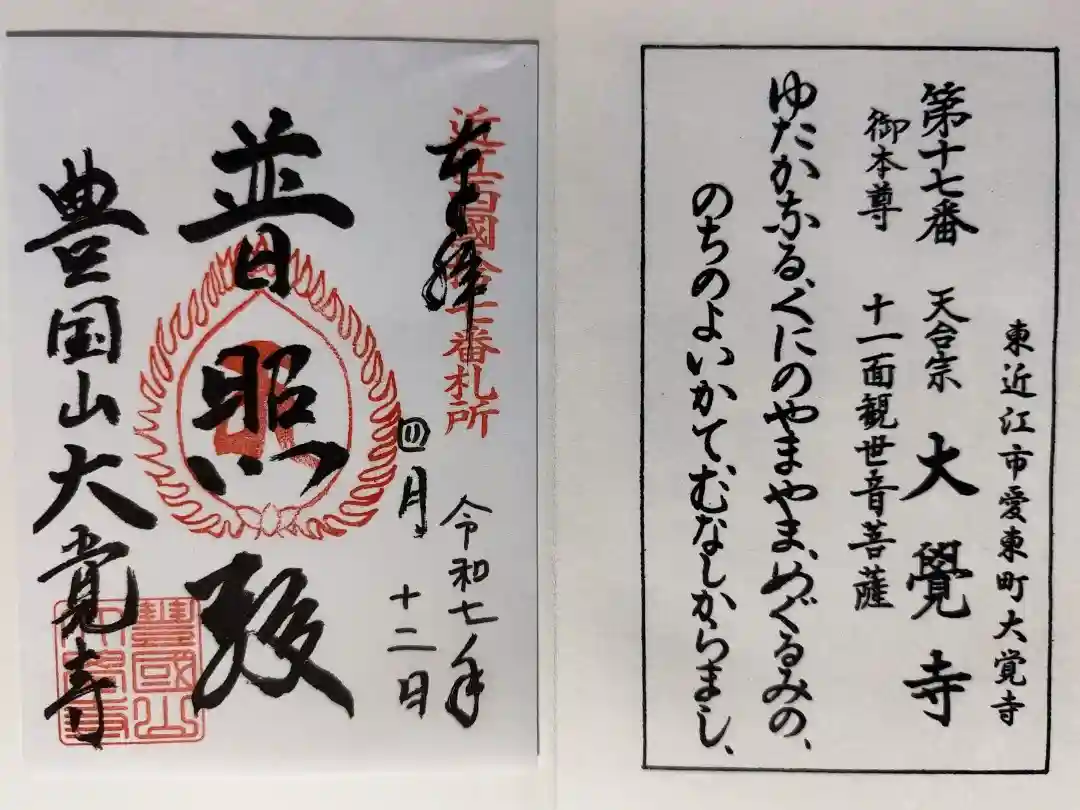 東近江市愛東町大覚寺
第十七番 天台宗 大覺寺
御本尊 十一面観世音菩薩
ゆたかなる、くにのやまやま、めぐるみの、
のちのよいかて、むなしからまし、
近江西國拾七番札所
奉拝
令和七年
四月
十二日
普照殿
豊国山大覚寺
豐國山
大覺寺